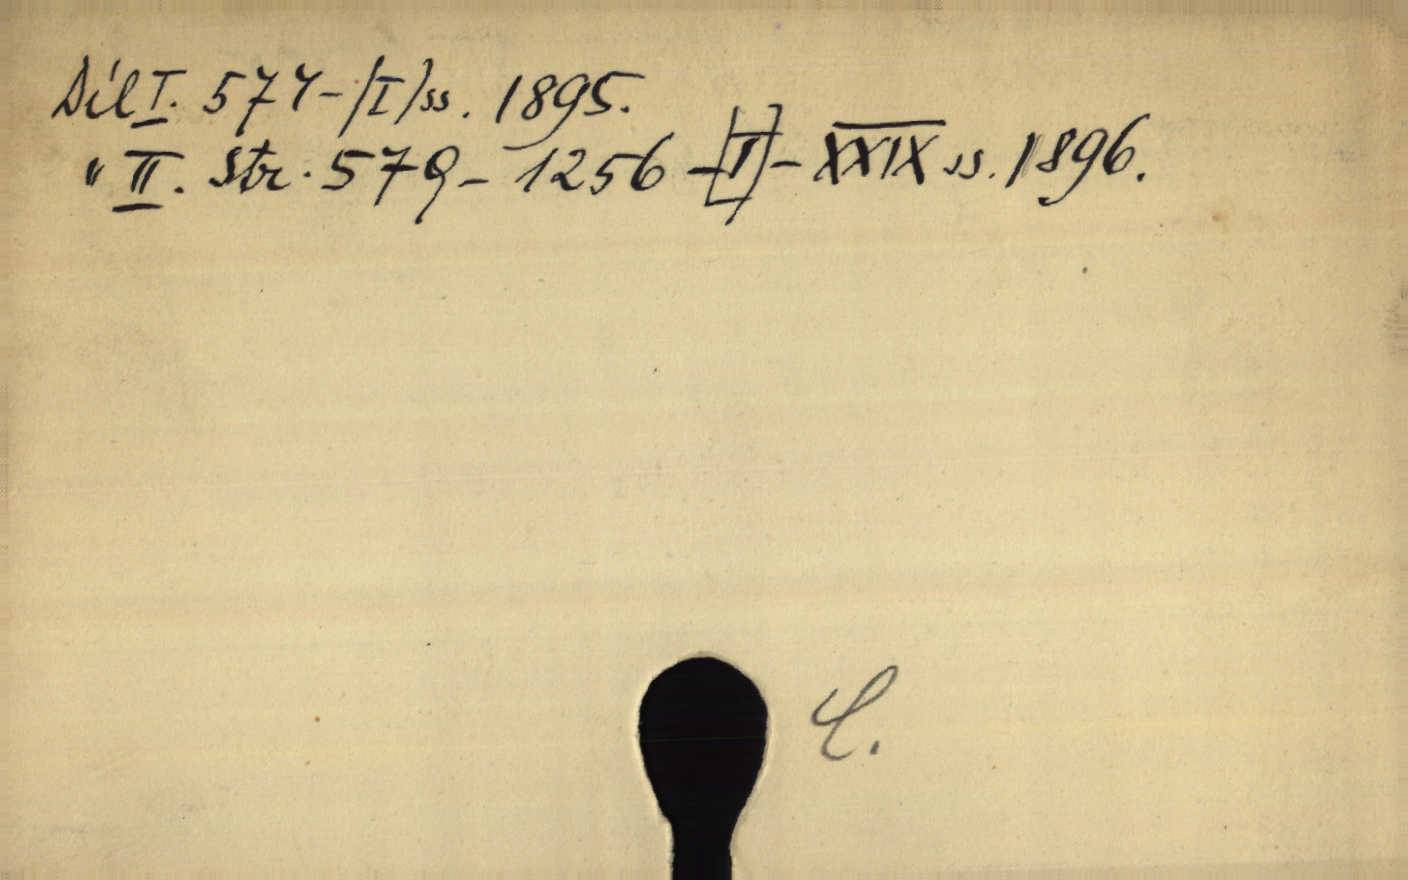 Díl I. 577-[I] ss. 1895.
" II. str. 579-1256-[I]-XXIX ss. 1896.